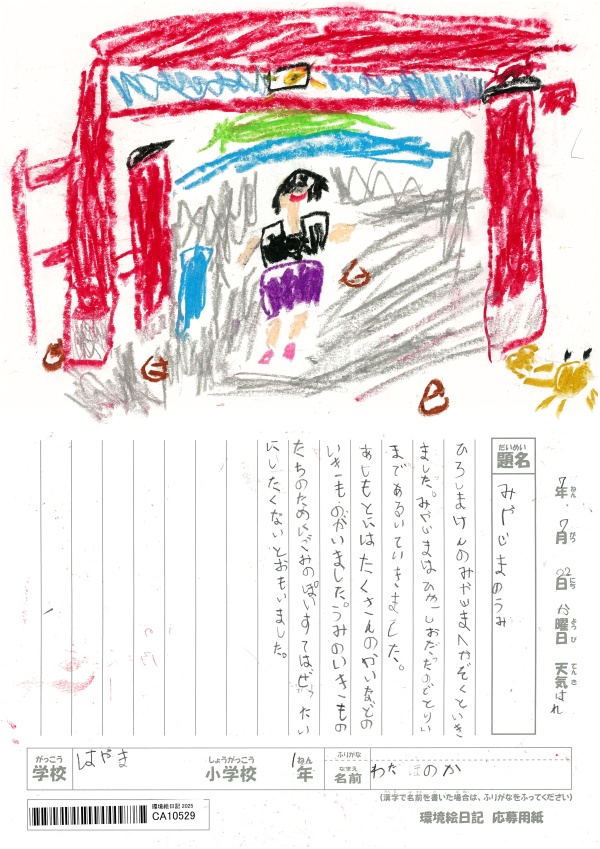 7年 7月 22日 火曜日 天気 はれ
ねん がつ にち よう び てんき
だいめい
題名
みやじまのうみ
ひろしまけんのみやじまへかぞくといき
ました。みやじまはひがしおだったのでとりい
まであるいていきました。
あしもとにはたくさんのかいなどの
いきものがいました。うみのいきもの
たちのためにごみのぽいすてはぜったい
にしたくないとおもいました。
がっこう
学校
はやま
しょうがっこう
小学校
1年
ねん
ふりがな
なまえ
名前
のか
(漢字で名前を書いた場合は、ふりがなをふってください)
環境絵日記 2025
CA10529
環境絵日記 応募用紙